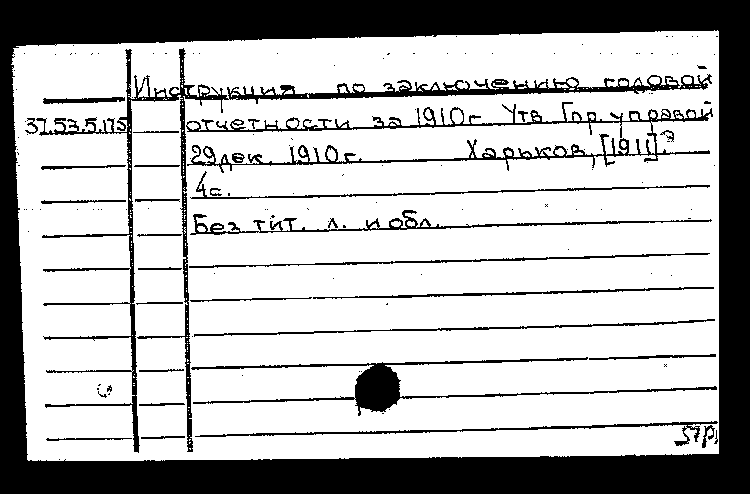 Инструкция по заключению годовой
37.53.5.175 отчетности за 1910г Утв Гор. управой
29 дек. 1910г. Харьков, [1911].
4с.
Без тит. л. и обл.